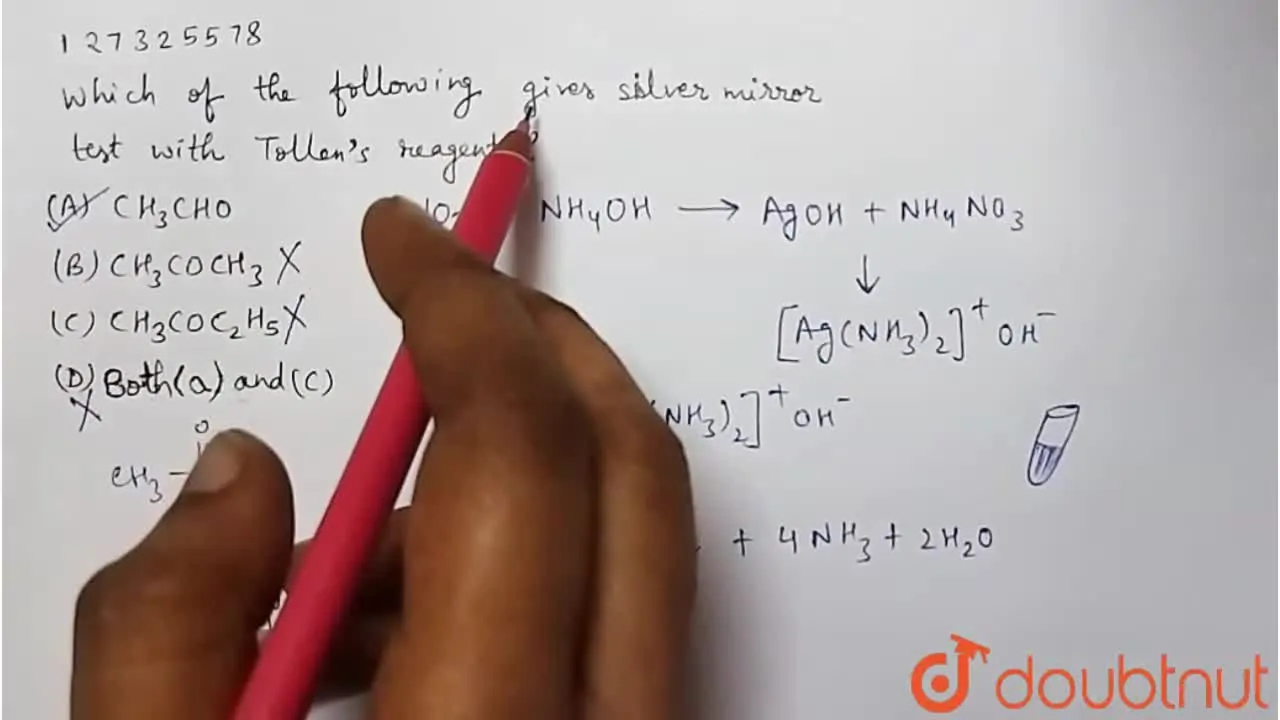 1 2 7 3 2 5 5 7 8
Which of the following gives silver mirror
test with Tollen's reagent ?
(A) CH3CHO
NH4OH → AgOH + NH4NO3
(B) CH3COCH3 X
↓
(C) CH3COC2H5 X
[Ag(NH3)2]+ OH−
(D) Both (a) and (c)
X
(NH3)2]+ OH−
O
CH3 −
+ 4NH3 + 2H2O
doubtnut